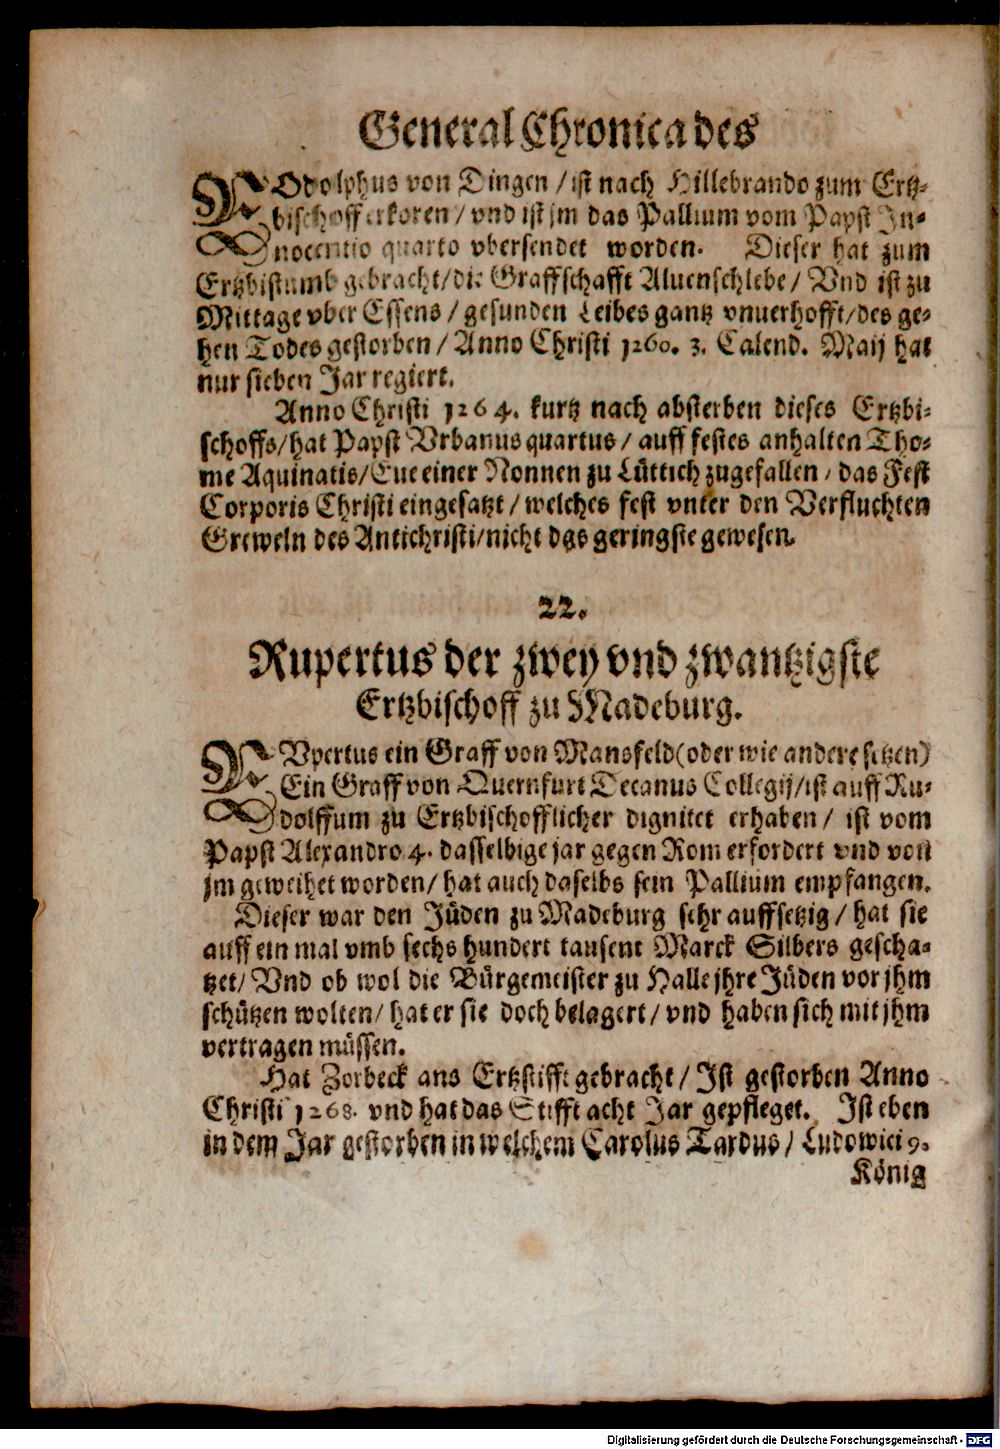 General Chronica des
ROdolphus von Dingen / ist nach Hillebrando zum Ertz-
bischoff erkoren / vnd ist jm das Pallium vom Papst In-
nocentio quarto vbersendet worden. Dieser hat zum
Ertzbistumb gebracht / die Graffschafft Aluenschlebe / Vnd ist zu
Mittage vber Essens / gesunden Leibes gantz vnuerhofft / des ge-
hen Todes gestorben / Anno Christi 1260. 3. Calend. Maij hat
nur sieben Jar regiert.
Anno Christi 1264. kurtz nach absterben dieses Ertzbi-
schoffs / hat Papst Vrbanus quartus / auff festes anhalten Tho-
me Aquinatis / Eue einer Nonnen zu Lüttich zugefallen / das Fest
Corporis Christi eingesatzt / welches fest vnter den Verfluchten
Greweln des Antichristi / nicht das geringste gewesen.
22.
Rupertus der zwey vnd zwantzigste
Ertzbischoff zu Madeburg.
RVpertus ein Graff von Mansfeld (oder wie andere setzen)
Ein Graff von Quernfurt Decanus Collegij / ist auff Ru-
dolffum zu Ertzbischofflicher dignitet erhaben / ist vom
Papst Alexandro 4. dasselbige jar gegen Rom erfordert vnd von
jm geweihet worden / hat auch daselbs sein Pallium empfangen.
Dieser war den Jüden zu Madeburg sehr auffsetzig / hat sie
auff ein mal vmb sechs hundert tausent Marck Silbers gescha-
tzet / Vnd ob wol die Bürgemeister zu Halle jhre Jüden vor jhm
schützen wolten / hat er sie doch belagert / vnd haben sich mit jhm
vertragen müssen.
Hat Zorbeck ans Ertzstifft gebracht / Ist gestorben Anno
Christi 1268. vnd hat das Stifft acht Jar gepfleget. Ist eben
in dem Jar gestorben in welchem Carolus Tardus / Ludowici 9.
König
Digitalisierung gefördert durch die Deutsche Forschungsgemeinschaft - DFG